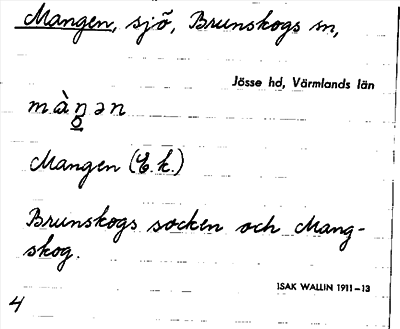 Mangen, sjö, Brunskogs sn,
Jösse hd, Värmlands län
Mangen (E.k.)
Brunskogs socken och Mang-
skog.
ISAK WALLIN 1911–13
4